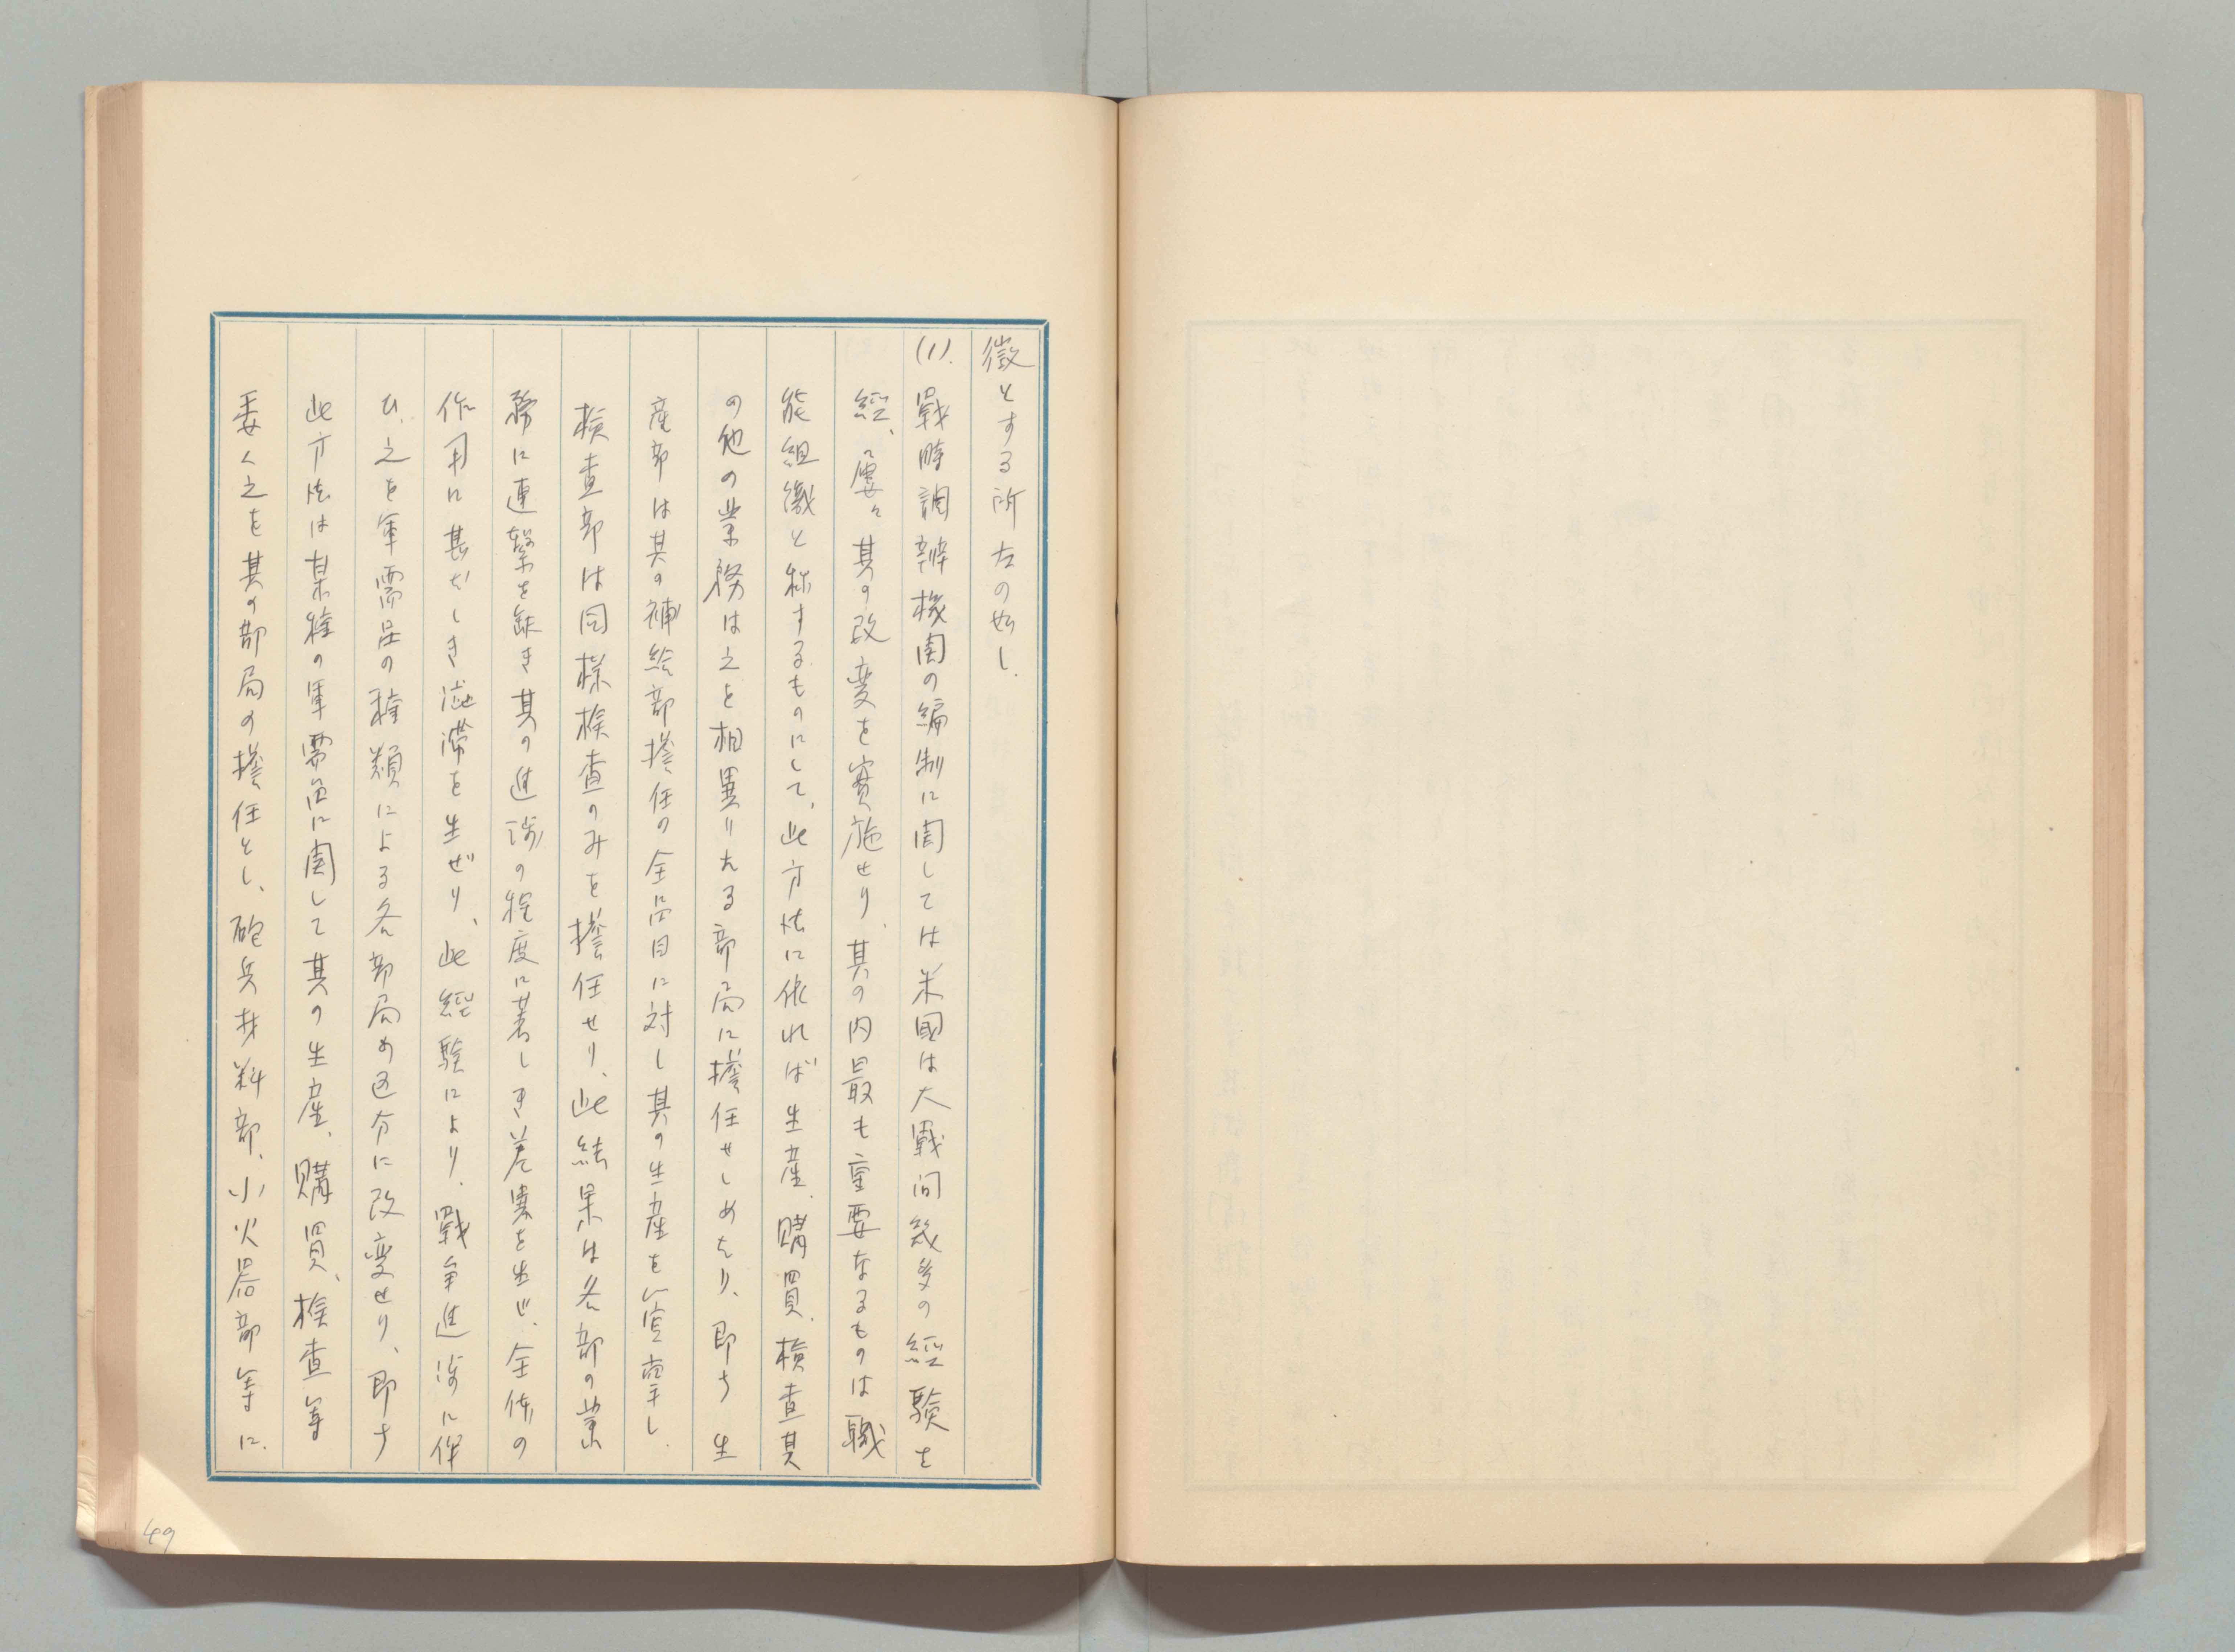 徴とする所左の如し.
(1). 戰時調辨機関の編制に関しては米國は大戰间幾多の経験を
経、屢々其の改変を實施せり.其の内最も重要なるものは職
能組織と称するものにして、此方法に依れば生産.購買.検査其
の他の業務は之を相異りたる部局に擔任せしめたり、即ち生
産部は其の補給部擔任の全品目に対し其の生産を管掌し.
検査部は同様検査のみを擔任せり、此結果は各部の業
務に連繫を缺き其の進渉の程度に著しき差異を生じ、全体の
作用に甚だしき澁滞を生ぜり、此経験により.戰争進渉に伴
ひ、之を軍需品の種類による各部局の区分に改変せり、即ち
此方法は某種の軍需品に関して其の生産、購買、検査等
委く之を其の部局の擔任とし、砲兵材料部、小火器部等に.
49